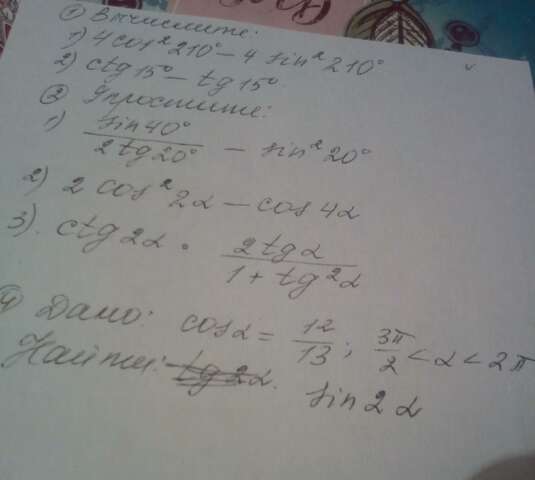 ① Вычислите:
1) 4cos²210° − 4 sin²210°
2) ctg15° − tg15°
② Упростите:
1) sin40° / 2tg20° − sin²20°
2) 2cos²2α − cos4α
3). ctg2α · 2tgα / 1 + tg²α
④ Дано: cosα = 12/13; 3π/2 < α < 2π
Найти: sin2α